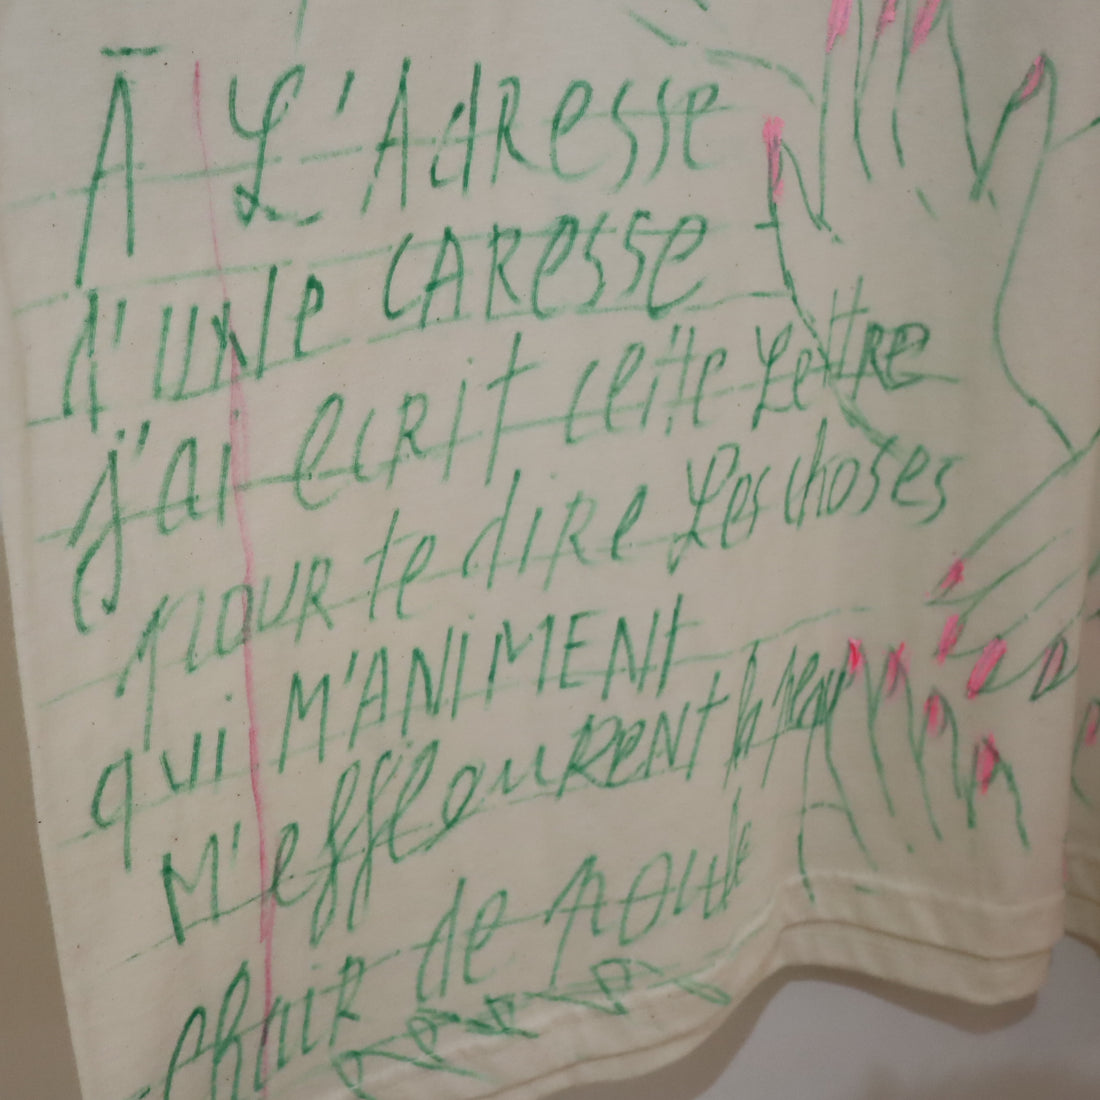 À L'AdResse
d'UNe CARESSE
j'ai ecRit cette Lettre
pouR te diRe Les choses
qui M'ANiMENt
M'effleuRENt la peau
chaiR de pOule